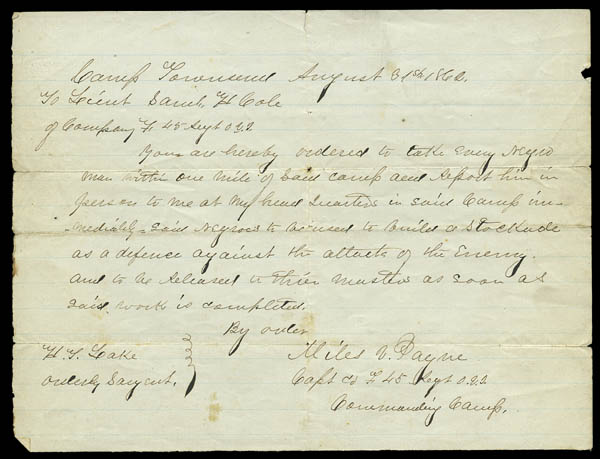 Camp Townsend August 31st 1862.
To Lieut Saml H Cole
of Company F 45 Regt O.V.I
You are hereby ordered to take Every Negro
man within one mile of Said camp and Report him in
person to me at My head Quarters in said Camp im-
-mediately - Said Negroes to be used to build a Stockade
as a defence against the attack of the Enemy.
and to be Released to their masters as soon as
said work is completed.
By order
Miles V. Payne
Capt Co F 45 Regt O.V.I
Commanding Camp.
Orderly Sargent.